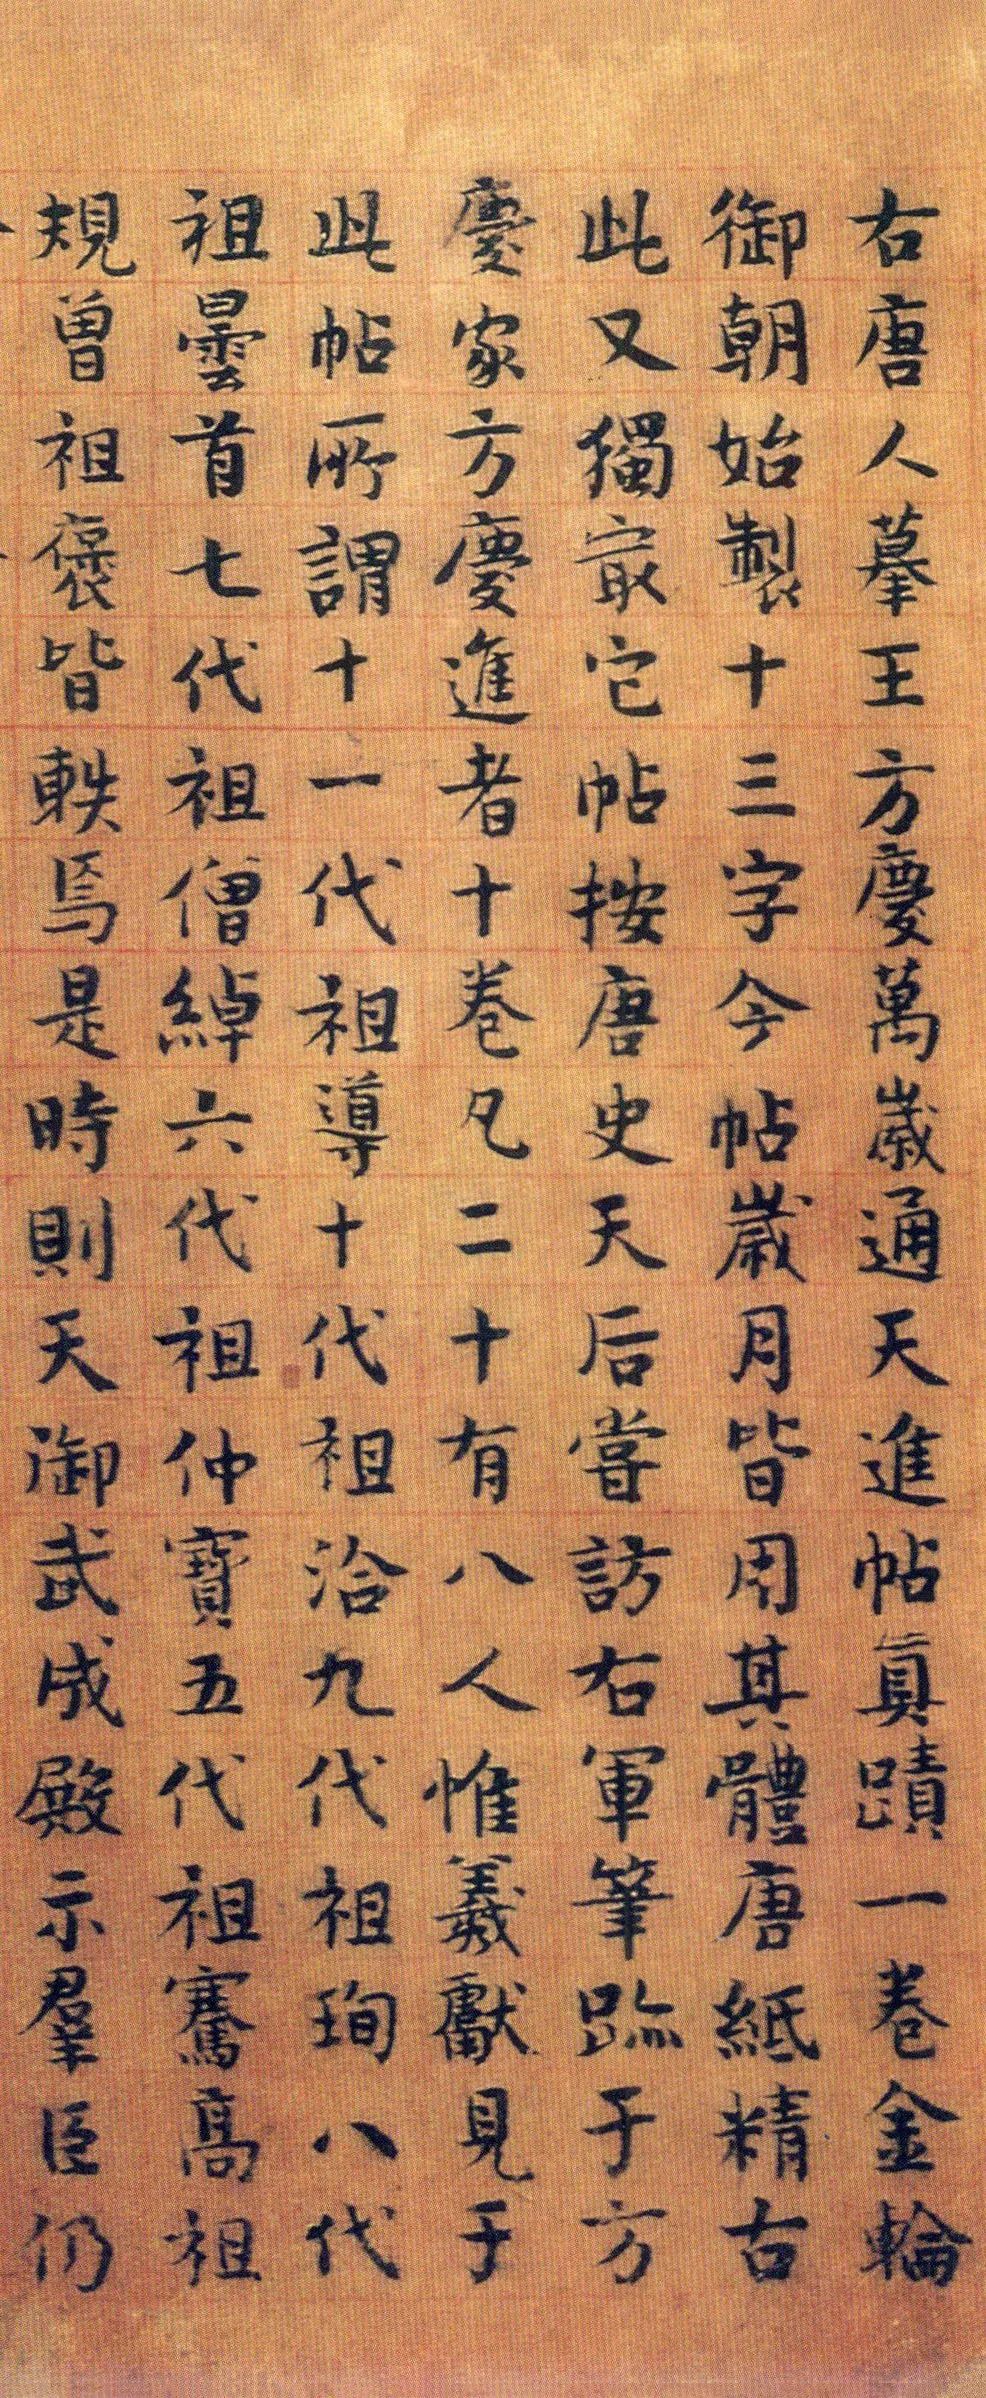 右唐人摹王方慶萬歲通天進帖真蹟一卷金輪
御朝始製十三字今帖歲月皆用其體唐紙精古
此又獨冣它帖按唐史天后嘗訪右軍筆跡于方
慶家方慶進者十卷凡二十有八人惟羲獻見于
此帖所謂十一代祖導十代祖洽九代祖珣八代
祖曇首七代祖僧綽六代祖仲寶五代祖騫高祖
規曾祖褒皆軼焉是時則天御武成殿示羣臣仍